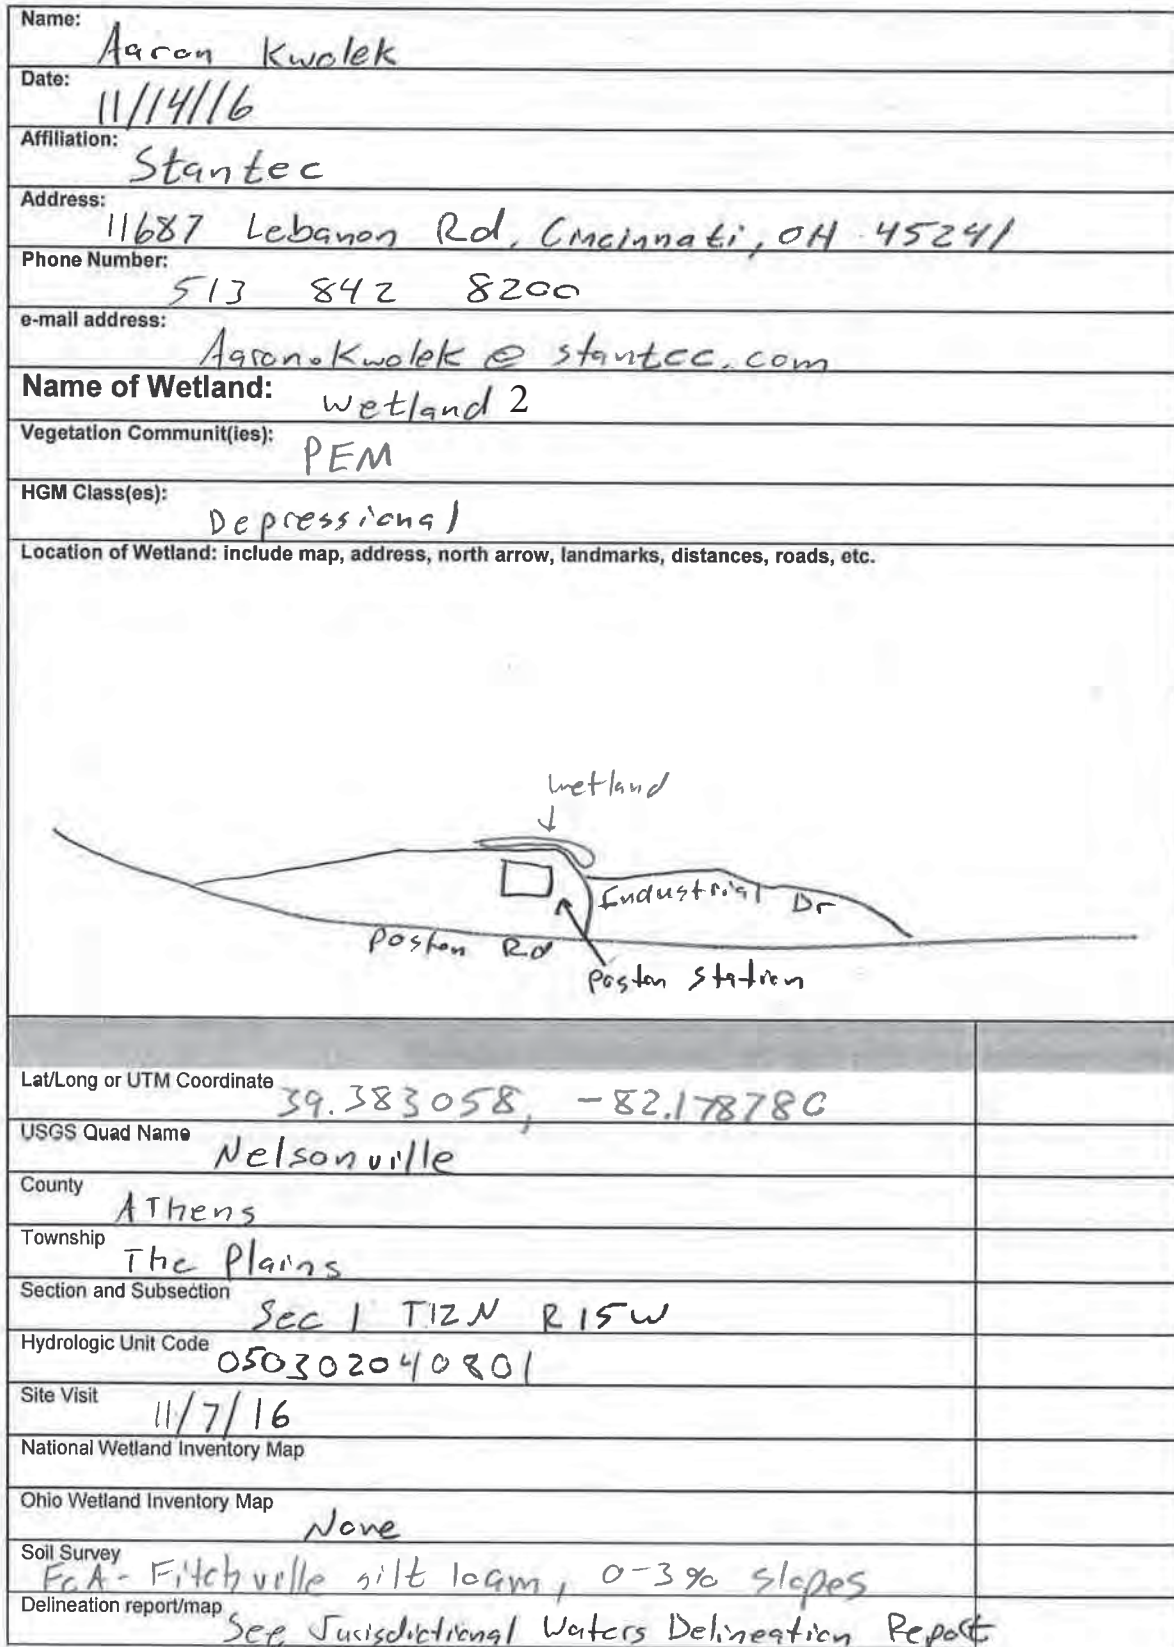 Name:
Aaron Kwolek
Date:
11/14/16
Affiliation:
Stantec
Address:
11687 Lebanon Rd, Cincinnati, OH 45241
Phone Number:
513 842 8200
e-mail address:
Aaron.Kwolek @ stantec.com
Name of Wetland: Wetland 2
Vegetation Communit(ies):
PEM
HGM Class(es):
Depressional
Location of Wetland: include map, address, north arrow, landmarks, distances, roads, etc.
Wetland
Industrial Dr
Poston Rd
Poston Station
Lat/Long or UTM Coordinate 39.383058, -82.178780
USGS Quad Name
Nelsonville
County
AThens
Township
The Plains
Section and Subsection
Sec 1 T12N R15W
Hydrologic Unit Code
050302040801
Site Visit
11/7/16
National Wetland Inventory Map
Ohio Wetland Inventory Map
None
Soil Survey
FcA - Fitchville silt loam, 0-3% slopes
Delineation report/map
See Jurisdictional Waters Delineation Report